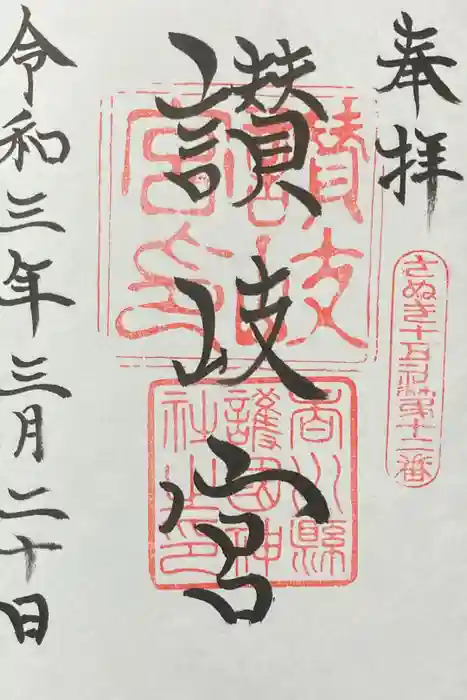 奉拝
さぬき十五社第十二番
讃岐宮
讃岐
宮印
香川縣
護國神
社之印
令和三年三月二十日